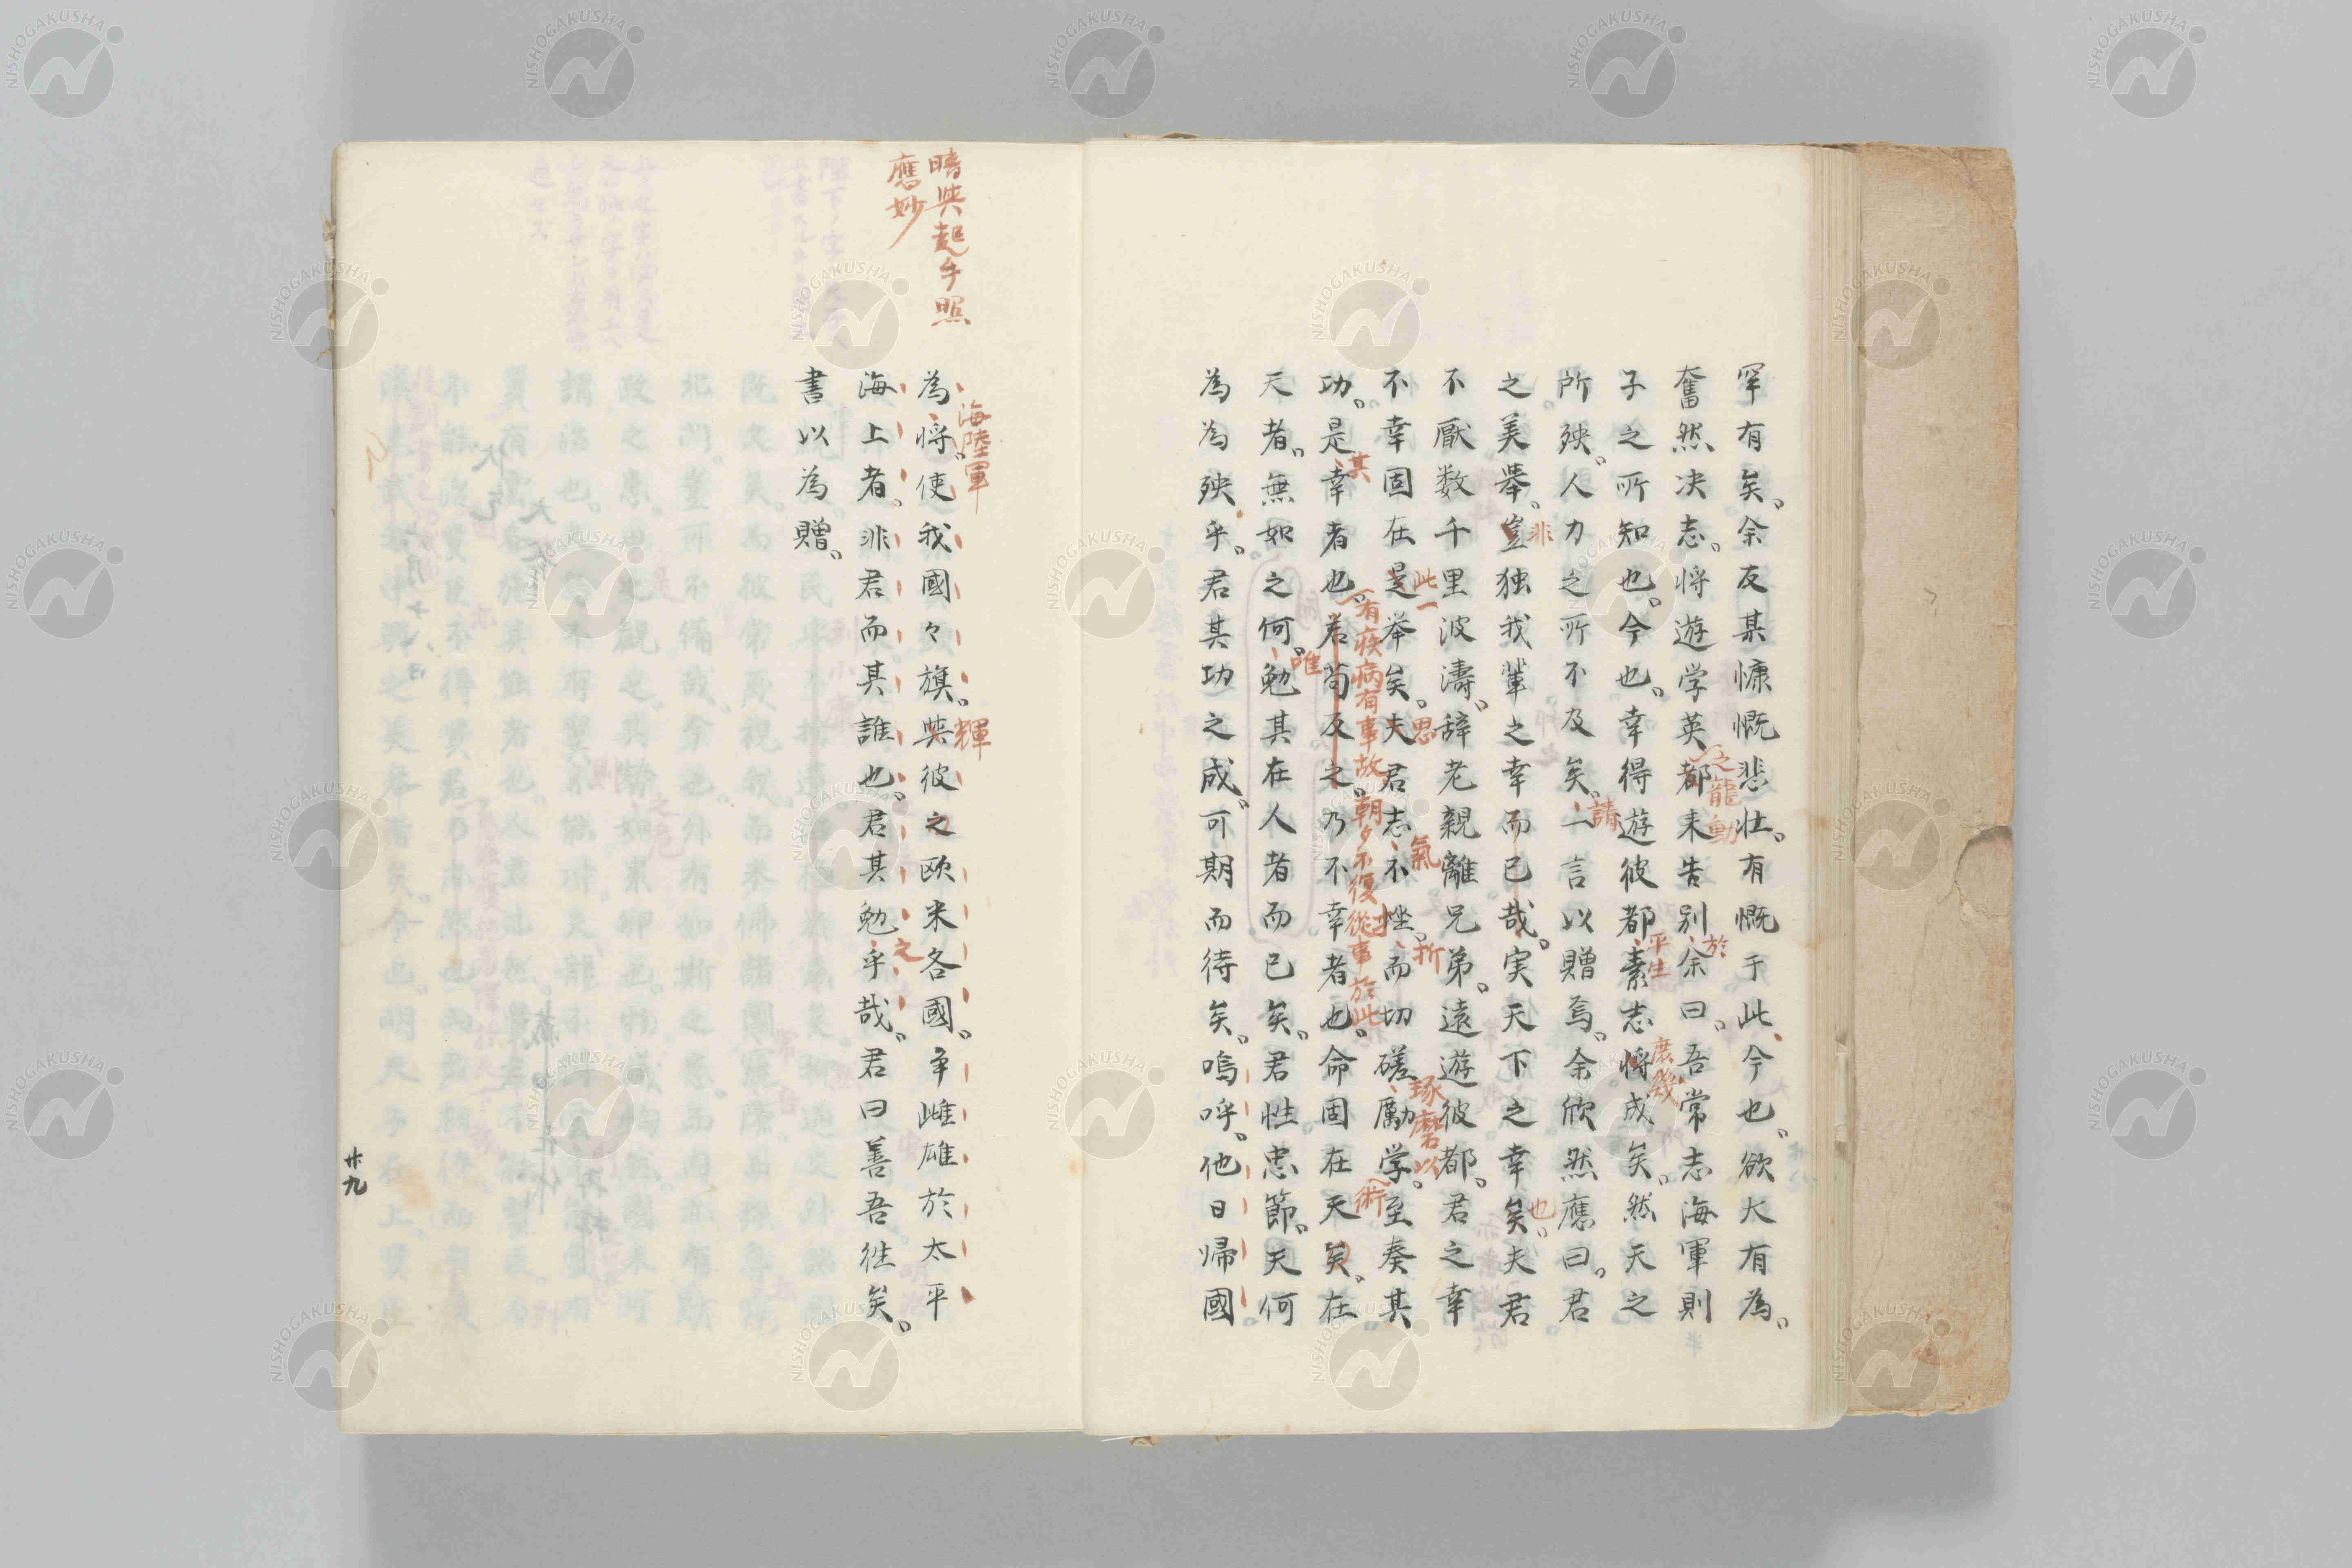 罕有矣。余友某慷慨悲壮。有慨于此、今也。欲大有為。
奮然決志。将遊学英都来告別余曰。吾常志海軍則
之龍動
於
子之所知也。今也。幸得遊彼都素志将成矣。然天之
平生
庶幾
所殃。人力之所不及矣。一言以贈焉。余欣然應曰。君
請
之美舉。豈独我輩之幸而已哉。実天下之幸矣夫君
非
也。
不厭数千里波濤。辞老親離兄弟。遠遊彼都。君之幸
不幸固在是举矣。夫君志不挫。而切磋勵学。至奏其
此一
思
氣
折
琢磨以
術
功。是幸者也。若苟反之。乃不幸者也。命固在天矣。在
其
有疾病有事故朝夕不復從事於此
天者。無如之何。勉其在人者而已矣。君性忠節。天何
唯
為為殃乎。君其功之成。可期而待矣。嗚呼。他日帰國
為将。使我國々旗。與彼之欧米各國。争雌雄於太平
海陸軍
輝
海上者。非君而其誰也。君其勉乎哉。君曰善吾往矣。
之
書以為贈。
暗與起手照
應妙
廿九